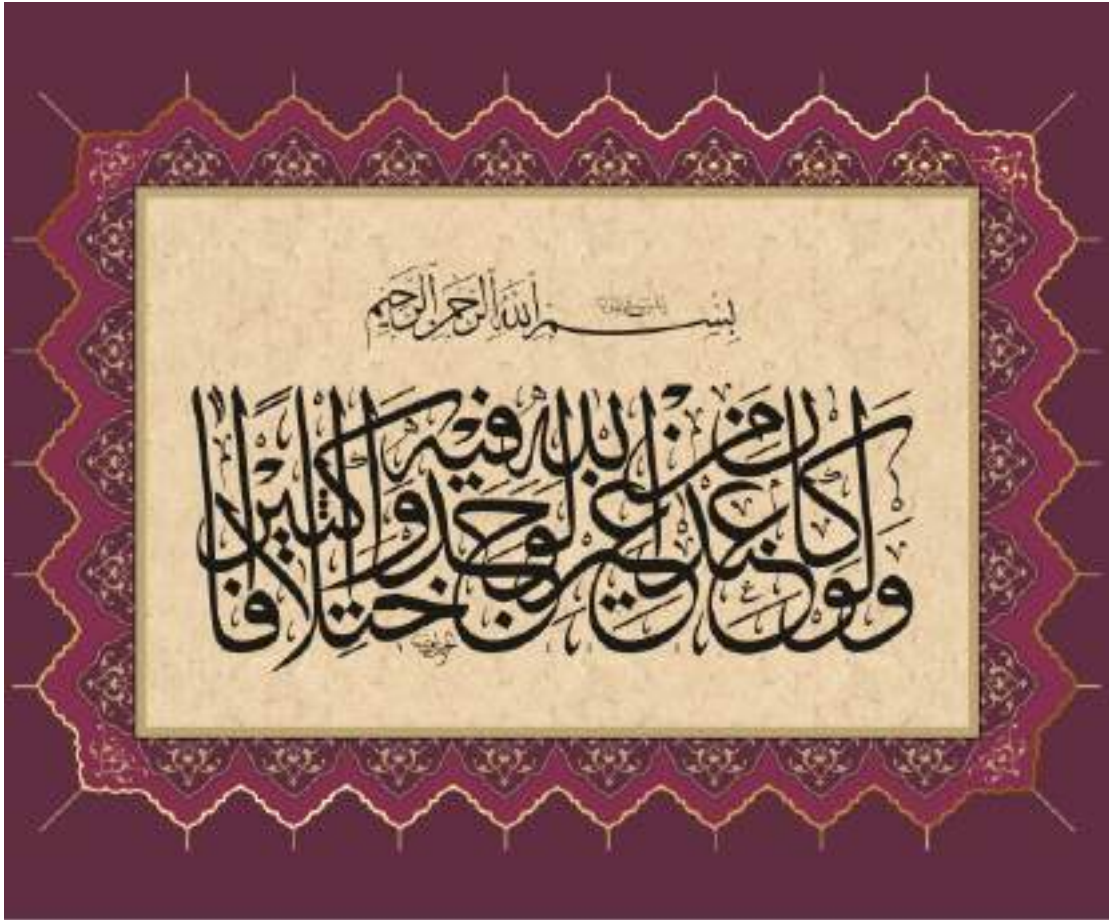 بِسْمِ ٱللَّهِ ٱلرَّحْمَٰنِ ٱلرَّحِيمِ
وَلَوْ كَانَ مِنْ عِندِ غَيْرِ ٱللَّهِ لَوَجَدُوا۟ فِيهِ ٱخْتِلَٰفًا كَثِيرًا